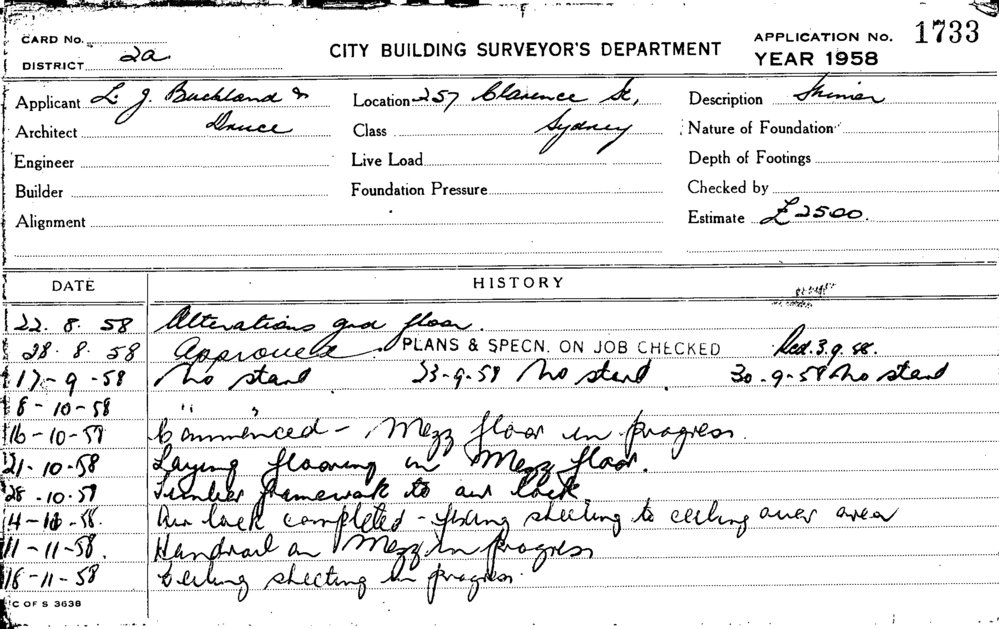 CARD No.
DISTRICT 2a
CITY BUILDING SURVEYOR'S DEPARTMENT
APPLICATION No. 1733
YEAR 1958
Applicant L. J. Buckland &
Druce
Location 257 Clarence St,
Sydney
Description
Architect
Class
Nature of Foundation
Engineer
Live Load
Depth of Footings
Builder
Foundation Pressure
Checked by
Alignment
Estimate £2500.
DATE HISTORY
22. 8. 58 Alterations grd floor.
28. 8. 58 Approved. PLANS & SPECN. ON JOB CHECKED 3.9.58.
17-9-58 No start 23-9-58 No start. 30-9-58 No start
8-10-58 " "
16-10-58 Commenced - Mezz floor in progress.
21-10-58 Laying flooring in Mezz floor.
28-10-58 Timber framework to air lock.
4-11-58. Air lock completed - fixing sheeting to ceiling over area
11-11-58. Handrail on Mezz. in progress
18-11-58 Ceiling sheeting in progress.
C OF S 3638